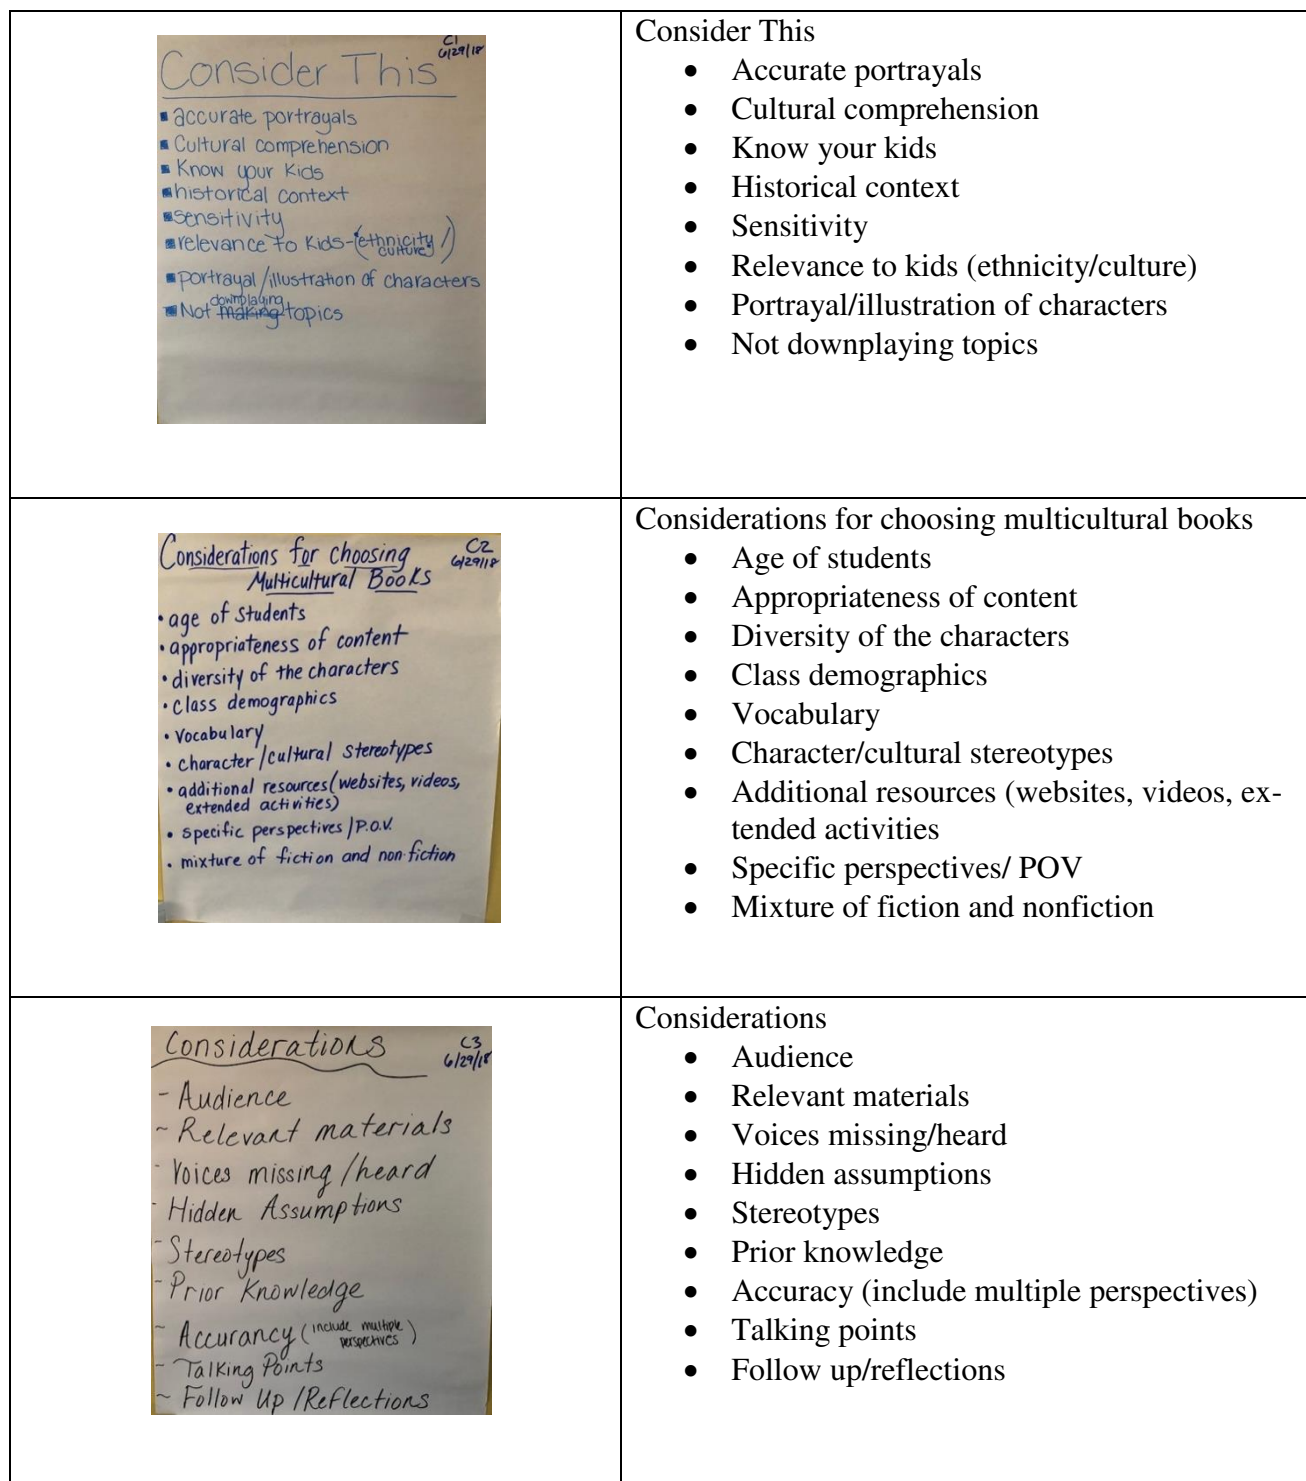 C1
6/29/18
Consider This
▪ accurate portrayals
▪ Cultural comprehension
▪ Know your Kids
▪ historical context
▪ sensitivity
▪ relevance to Kids-(ethnicity/
culture)
▪ portrayal/illustration of characters
downplaying
▪ Not making topics
Consider This
• Accurate portrayals
• Cultural comprehension
• Know your kids
• Historical context
• Sensitivity
• Relevance to kids (ethnicity/culture)
• Portrayal/illustration of characters
• Not downplaying topics
Considerations for choosing
Multicultural Books
C2
6/29/18
• age of students
• appropriateness of content
• diversity of the characters
• class demographics
• vocabulary
• character/cultural stereotypes
• additional resources (websites, videos,
extended activities)
• specific perspectives/P.O.V.
• mixture of fiction and non-fiction
Considerations for choosing multicultural books
• Age of students
• Appropriateness of content
• Diversity of the characters
• Class demographics
• Vocabulary
• Character/cultural stereotypes
• Additional resources (websites, videos, ex-
tended activities
• Specific perspectives/ POV
• Mixture of fiction and nonfiction
Considerations
C3
6/29/18
- Audience
~ Relevant materials
- Voices missing/heard
- Hidden Assumptions
- Stereotypes
- Prior Knowledge
~ Accurancy (include multiple
perspectives)
- Talking Points
~ Follow Up/Reflections
Considerations
• Audience
• Relevant materials
• Voices missing/heard
• Hidden assumptions
• Stereotypes
• Prior knowledge
• Accuracy (include multiple perspectives)
• Talking points
• Follow up/reflections